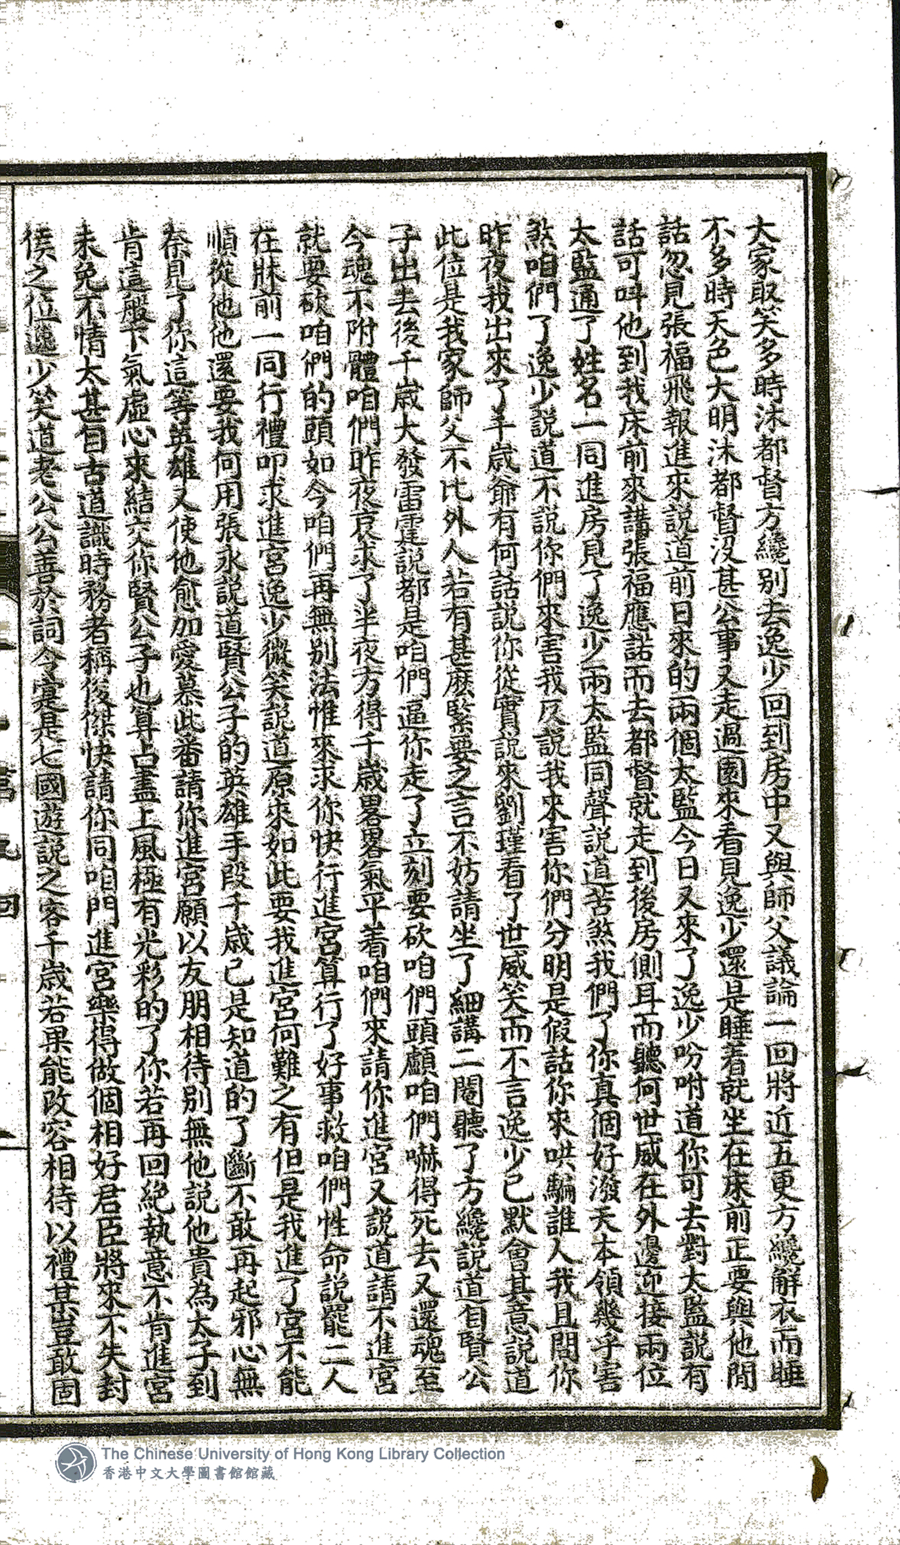 大家取笑多時沐都督方纔別去逸少回到房中又與師父議論一回將近五更方纔解衣而睡
不多時天色大明沐都督沒甚公事又走過園來看見逸少還是睡着就坐在床前正要與他閒
話忽見張福飛報進來說道前日來的兩個太監今日又來了逸少吩咐道你可去對太監說有
話可呌他到我床前來講張福應諾而去都督就走到後房側耳而聽何世威在外邊迎接兩位
太監通了姓名一同進房見了逸少兩太監同聲說道苦煞我們了你真個好潑天本領幾乎害
煞咱們了逸少說道不說你們來害我反說我來害你們分明是假話你來哄騙誰人我且問你
昨夜我出來了千歲爺有何話說你從實說來劉瑾看了世威笑而不言逸少已默會其意說道
此位是我家師父不比外人若有甚麽緊要之言不妨請坐了細講二閹聽了方纔說道自賢公
子出去後千歲大發雷霆說都是咱們逼你走了立刻要砍咱們頭顱咱們嚇得死去又還魂至
今魂不附體咱們昨夜哀求了半夜方得千歲畧畧氣平着咱們來請你進宮又說道請不進宮
就要砍咱們的頭如今咱們再無別法惟來求你快行進宮算行了好事救咱們性命說罷二人
在牀前一同行禮叩求進宮逸少微笑說道原來如此要我進宮何難之有但是我進了宮不能
順從他他還要我何用張永說道賢公子的英雄手段千歲已是知道的了斷不敢再起邪心無
奈見了你這等英雄又使他愈加愛慕此番請你進宮願以友朋相待別無他說他貴為太子到
肯這般下氣虛心來結交你賢公子也算占盡上風極有光彩的了你若再回絶執意不肯進宮
未免不情太甚自古道識時務者稱俊傑快請你同咱門進宮樂得做個相好君臣將來不失封
侯之位逸少笑道老公公善於詞令寔是七國遊說之客千歲若果能改容相待以禮某豈敢固
回
The Chinese University of Hong Kong Library Collection
香港中文大學圖書館館藏